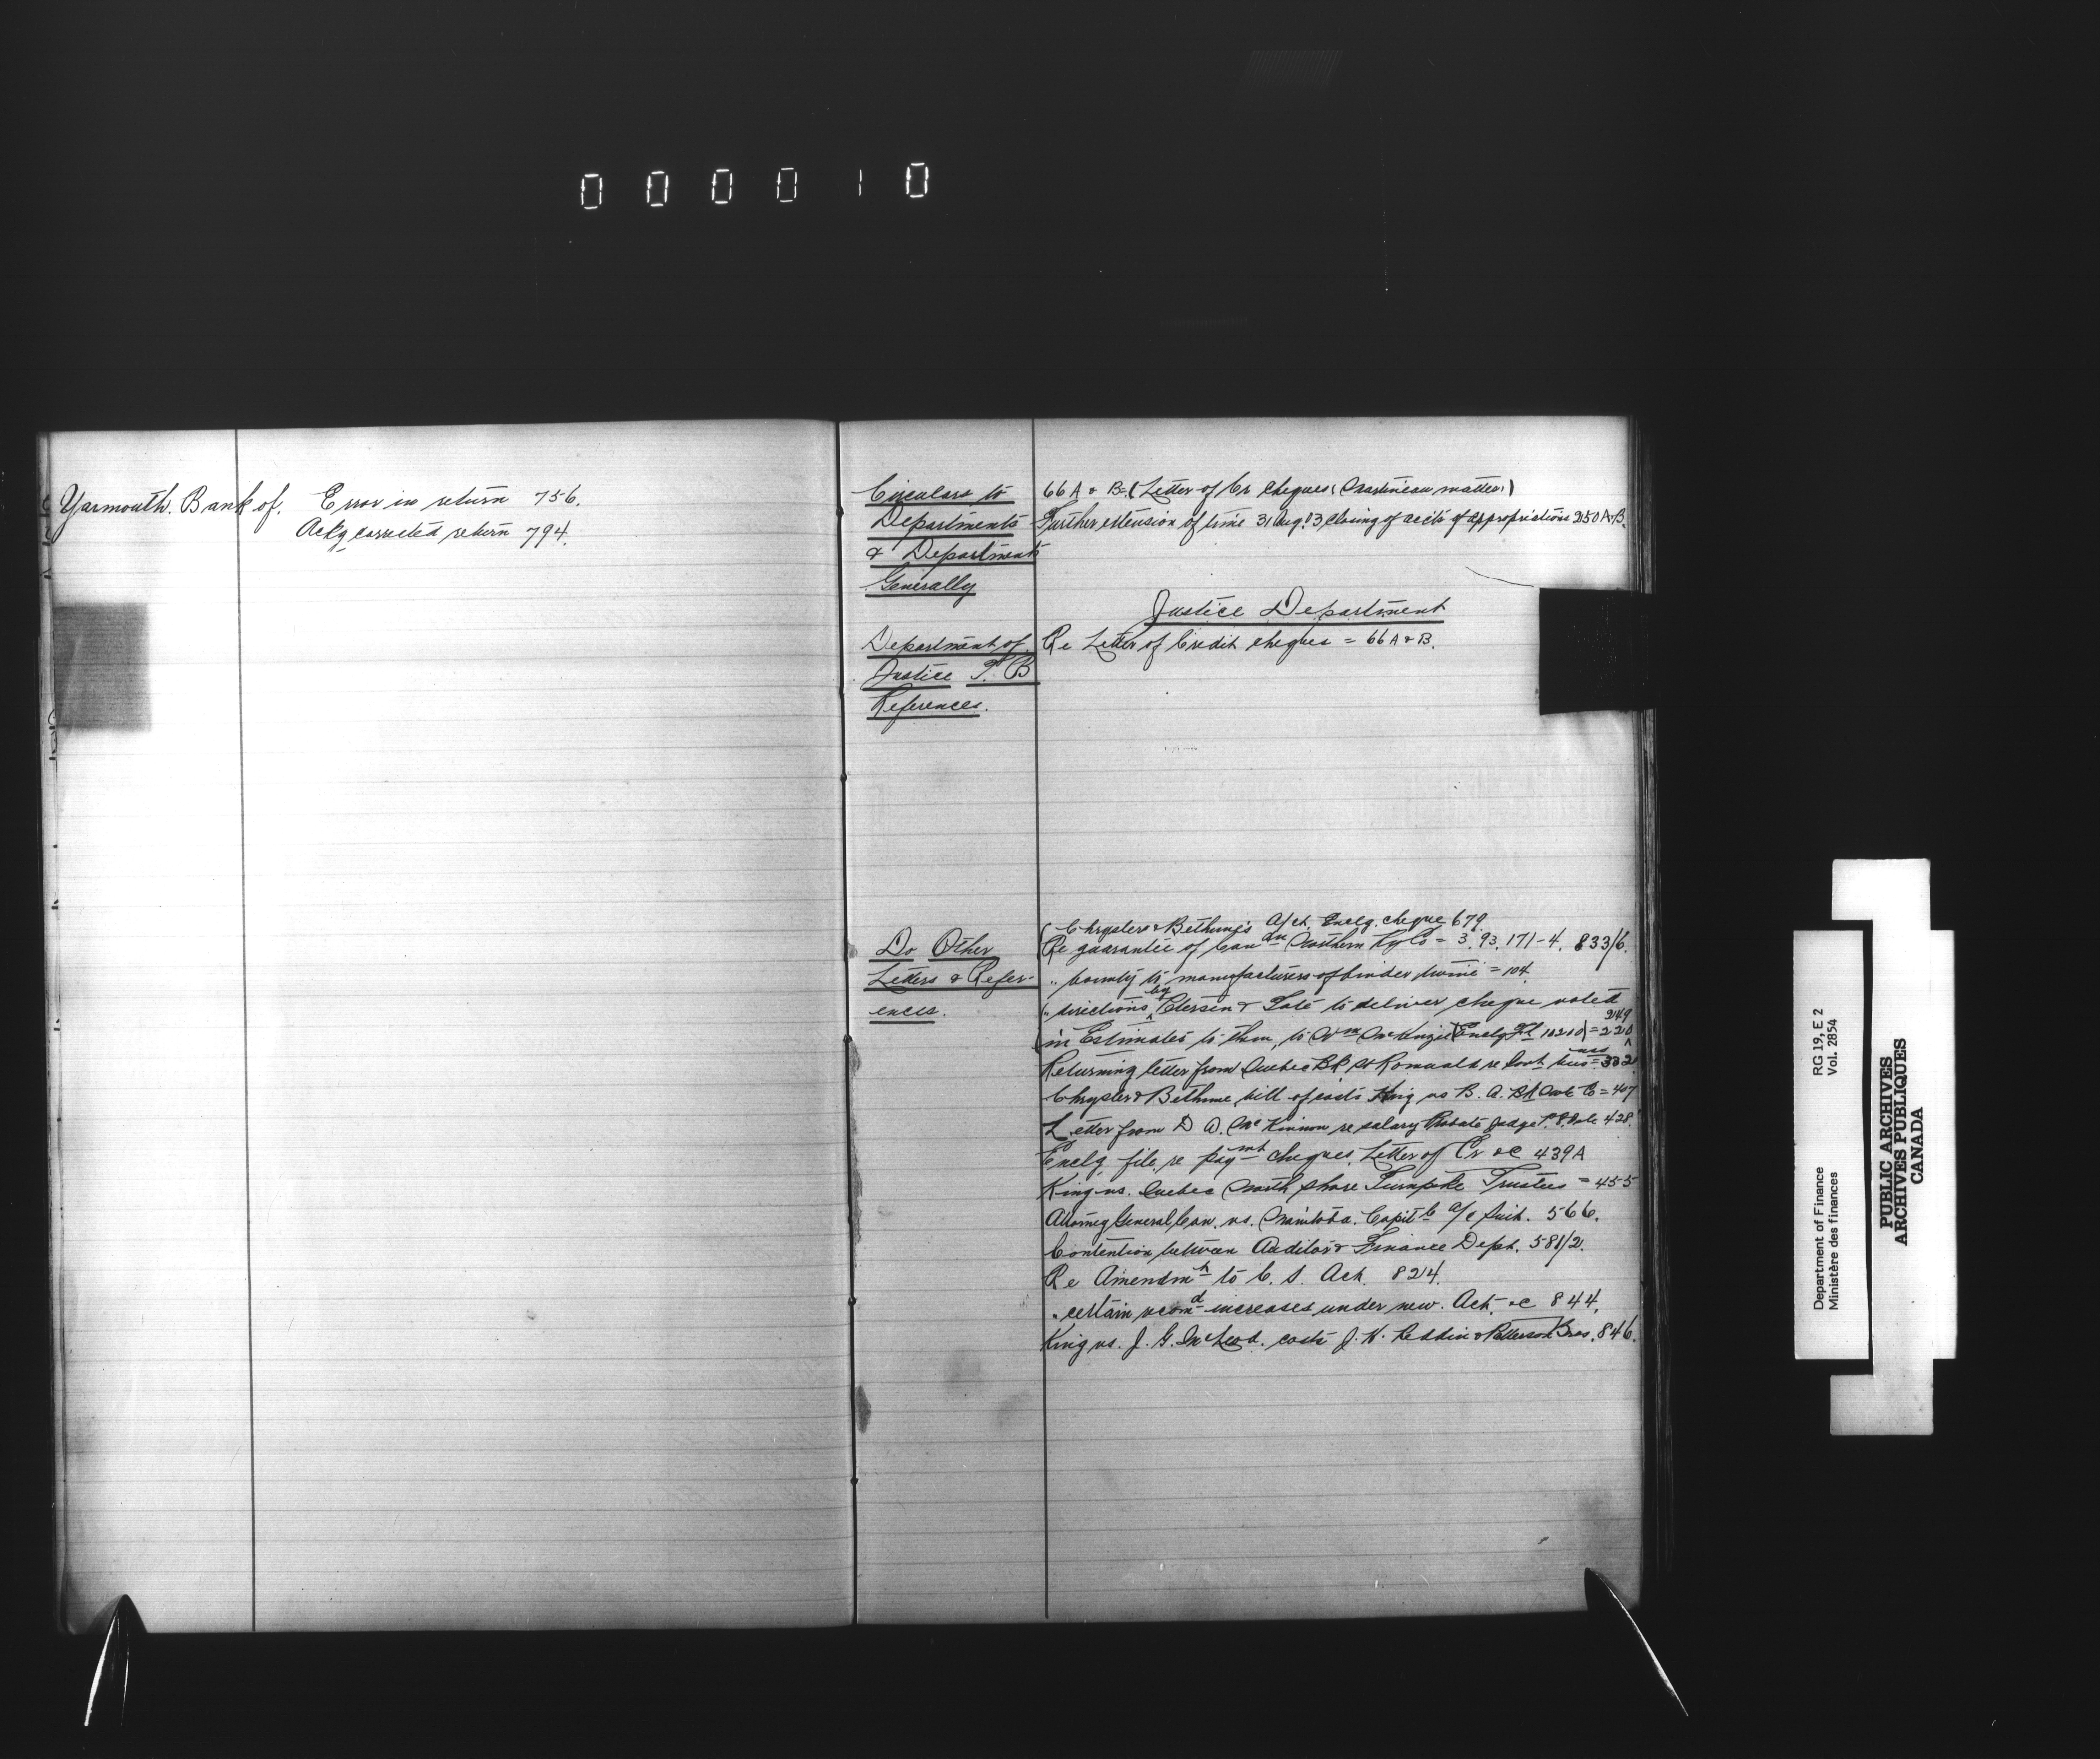 000010
Yarmouth. Bank of. Error in return 756.
Ackg corrected return 794.
Circulars to
Departments
& Departments
Generally
66 A & B. (Letter of Cr cheques (Martineau matter.)
Further extension of time 31 Aug. '03 closing of accts of appropriations 250 A+B.
Justice Department
Department of
Justice T. B
References.
Re Letter of Credit cheques = 66 A & B.
Do Other
Letters & Refer-
ences.
Chrysler & Bethune's A/ct. Enclg. cheque 679.
Re guarantee of Candn Northern Ry Co = 3, 93, 171-4, 833/6.
" bounty to manufacturers of binder twine = 104.
" directions by Petersen & Tate to deliver cheque voted
in Estimates to them, to Wm McKenzie (Enclg 10210) = 220 249
Returning letter from Quebec Bk St Romuald re Govt business = 332
Chrysler & Bethune bill of costs King vs B. A. Bk Note Co = 407
Letter from D A. McKinnon re salary Probate Judge P. E. Isle 428.
Enclg. file re paymt cheques, Letter of Cr &c 439A
King vs. Quebec North Shore Turnpike Trustees = 455
Attorney General Can. vs. Manitoba. Capitl a/c Suit. 566.
Contention between Auditor & Finance Dept. 581/2.
Re Amendmt to C. S. Act. 824.
" certain recomd increases under new. Act. &c 844.
King vs. J. G. McLeod. costs J. H. Reddin & Patterson Bros. 846.
Department of Finance
Ministère des finances
RG 19, E 2
Vol. 2854
PUBLIC ARCHIVES
ARCHIVES PUBLIQUES
CANADA